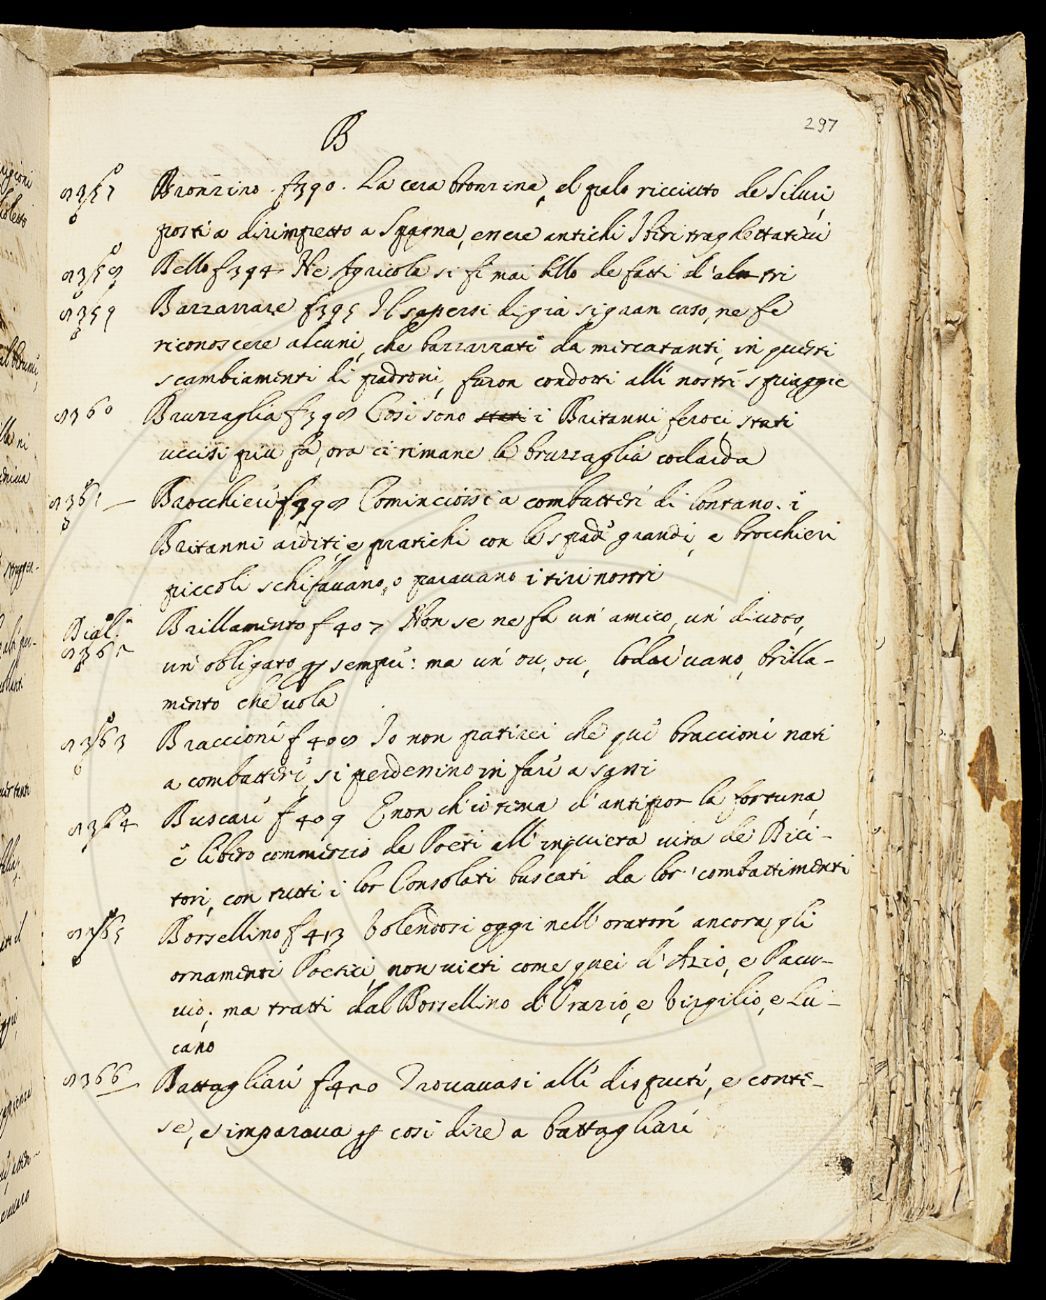 297
B
2357 Bronzino. f 390. La cera bronzina, el pelo ricciuto de Siluri,
posti a dirimpetto a Spagna, essere antichi Iberi traghettativi
2358 Bello f 394 Ne Agricola si fè mai bello de fatti d'altri
2359 Barzarrare f 395 Il sapersi di già sì gran caso, ne fe
riconoscere alcuni, che barzarrati da mercatanti, in questi
scambiamenti di padroni, furon condotti alli nostri spiaggie
2360 Bruzzaglia f 398 Così sono stati i Britanni feroci stati
uccisi più fà, ora ci rimane la bruzzaglia codarda
2361 Brocchieri f 398 Cominciossi a combatteri di lontano. i
Britanni arditi, e pratichi con le spade grandi, e brocchieri
piccoli schifavano, o paravano i tiri nostri
Dial.
2362 Brillamento f 407 Non se ne fa un' amico, un' divoto,
un' obligato p sempre: ma un' ou, ou, lodativano, brilla-
mento che vola
2363 Braccioni f 408 Io non patirei che que' braccioni nati
a combatteri, si perdessino in fare a sassi
2364 Buscare f 409 E non ch'io tema d'antipor la fortuna,
e libero commerzio de Poeti all' inquieta vita de Dici-
tori, con tutti i lor Consolati buscati da lor' combattimenti
2365 Borsellino f 413 Volendosi oggi nell' oratori ancora gli
ornamenti Poetici, non vieti come quei d'Azio, e Pacu-
vio; ma tratti dal Borsellino d'Orazio, e Virgilio, e Lu-
cano
2366 Battagliare f 420 Trovavasi alle dispute, e conte-
se, e imparava p così dire a battagliare